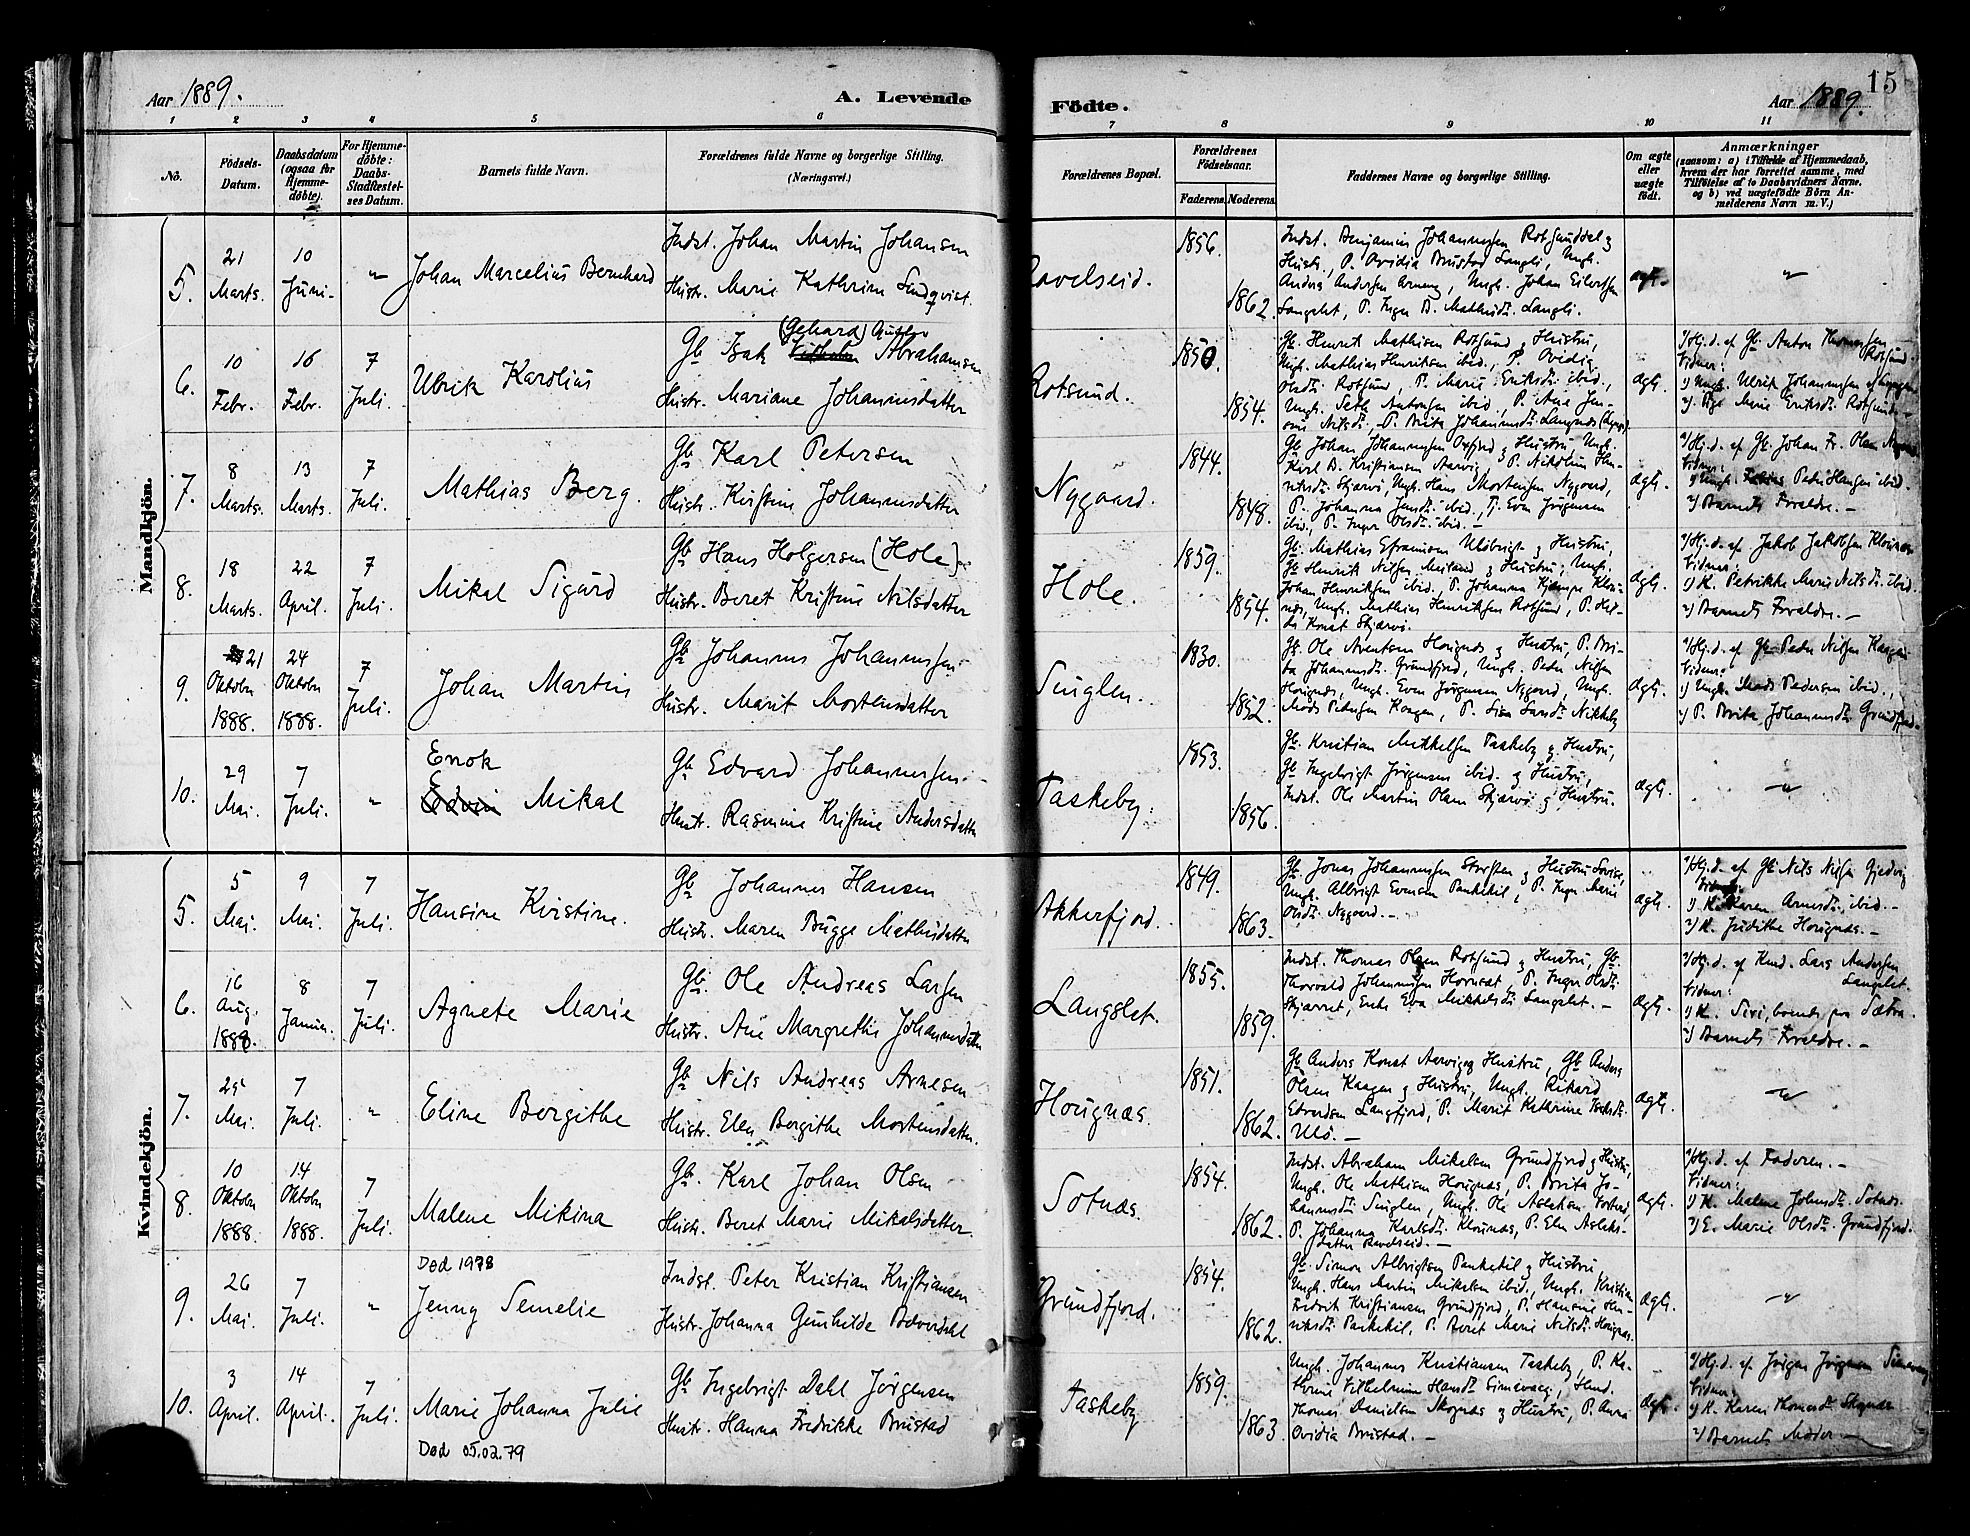 Aar 1889.
A. Levende
Födte.
Aar 1889.
15
1 2 3 4 5 6 7 8 9 10 11
No.
Födsels-
Datum.
Daabsdatum
(ogsaa for
Hjemme-
döbte).
For Hjemme-
döbte:
Daabs-
Stadfæstel-
ses Datum.
Barnets fulde Navn.
Forældrenes fulde Navne og borgerlige Stilling.
(Næringsvei.)
Forældrenes Bopæl.
Forældrenes
Födselsaar.
Faderens.
Moderens.
Faddernes Navne og borgerlige Stilling.
Om ægte
eller
uægte
födt.
Anmærkninger
(saasom: a) i Tilfælde af Hjemmedaab,
hvem der har forrettet samme, med
Tilföielse af to Daabsvidners Navne.
og b) ved uægtefödte Börn An-
melderens Navn m. V.)
Mandkjön.
5.
21
Marts.
10
Juni.
"
Johan Marcelius Bernhard
Indst. Johan Martin Johansen
Hustr. Marie Kathrine Lindqvist.
Ravelseid.
1856.
1862.
Indst. Benjamin Johannessen Rotsunddal og
Hustr., P. Ovidia Brustad Langli, Ungk.
Anders Andersen, Ungk. Johan Eilertsen
Langslet, P. Inger B. Mathisdtr. Langli.
ægte.
"
6.
10
Febr.
16
Febr.
7
Juli.
Ulrik Karolius
(Gehard)
Gb. Isak Abrahamsen
Hustr. Mariane Johannesdatter
Rotsund.
1850.
1854.
Gb. Henrik Mathisen Rotsund og Hustru,
Ungk. Mathias Henriksen ibid., P. Ovidia
Olsdtr. Rotsund, P. Marie Eriksdtr. ibid.,
Ungk. Seth Antonsen ibid., P. Ane Jen-
sine Nilsdtr., P. Brita Johannesdtr.
ægte.
Hj.d. af Gb. Anton Thomassen
Rotsund
Vidner:
1) Ungk. Ulrik Johannessen
2) Marie Eriksdtr. Rotsund.
7.
8
Marts.
13
Marts.
7
Juli.
Mathias Berg.
Gb. Karl Petersen
Hustr. Kristine Johannesdatter
Nygaard.
1844.
1848.
Gb. Johan Johannessen Oxfjord og Hustru, Ungk.
Kristiansen Aarvig, P. Nikoline Hen-
riksdtr. Skjærvö, Ungk. Hans Mortensen Nygaard,
P. Johanna Jensdtr. ibid., Tj. Even Jörgensen
ibid., P. Inger Olsdtr. ibid.
ægte.
Hj.d. af Gb. Johan Fr. Olsen
Vidner:
Peder Hansen ibid.
2) Barnets Forældre.
8.
18
Marts.
22
April.
7
Juli.
Mikal Sigurd
Gb. Hans Holgersen (Hole)
Hustr. Beret Kristine Nilsdatter
Hole.
1859.
1854.
Gb. Mathias Efraimsen og Hustru,
Gb. Henrik Nilsen Meiland og Hustru, Ungk.
Johan Henriksen ibid., P. Johanna
Ungk. Mathias Henriksen Rotsund, P.
Konst Skjærvö.
ægte.
Hj.d. af Jakob Jakobsen
Vidner:
1) K. Petrikke Marie Nilsdtr. ibid.
2) Barnets Forældre.
9.
21
Oktober
1888.
24
Oktober
1888.
7
Juli.
Johan Martin
Gb. Johannes Johannessen
Hustr. Marit Mortensdatter
Singlen.
1830.
1852.
Gb. Ole Arentsen Hougnæs og Hustru, P. Bri-
ta Johannesdtr. Grundfjord, Ungk. Peder Nilsen
Hougnæs, Ungk. Even Jörgensen Nygaard, Ungk.
Mads Pedersen Kaagen, P. Lisa Larsdtr. Nikkeby
ægte.
Hj.d. af Gb. Peder Nilsen Kaagen
Vidner:
1) Ungk. Mads Pedersen ibid.,
2) P. Brita Johannesdtr. Grundfjord.
10.
29
Mai.
7
Juli.
"
Enok
Edvin Mikal
Gb. Edvard Johannessen
Hustr. Rasmine Kristine Andersdatter
Taskeby.
1853.
1856.
Gb. Kristian Mikkelsen Taskeby og Hustru,
Gb. Ingebrigt Jörgensen ibid. og Hustru,
Indst. Ole Martin Olsen Skjærvö og Hustru.
ægte.
"
Kvindekjön.
5.
5
Mai.
9
Mai.
7
Juli.
Hansine Kristine.
Gb. Johannes Hansen
Hustr. Maren Bugge Mathisdatter
Akkerfjord.
1849.
1863.
Gb. Jonas Johannessen Storsten og Hustru Lovise,
Ungk. Albrigt Evensen Pankekil, P. Inger Marie
Olsdtr. Nygaard.
ægte.
Hj.d. af Gb. Nils Nilsen
Vidner:
1) K. Karen Arnesdtr. ibid.
2) K. Judithe Hougnæs.
6.
16
Aug.
1888.
8
Januar.
7
Juli.
Agnete Marie
Gb. Ole Andreas Larsen
Hustr. Ane Margrethe Johannesdatter
Langslet.
1855.
1859.
Indst. Thomas Olsen Rotsund og Hustru, Gb.
Thorvald Johannessen, P. Inger Olsdtr.
Enke Eva Mikkelsdtr. Langslet.
ægte.
Hj.d. af Kmd. Lars Andersen
Langslet.
Vidner:
1) K. Siri, boende paa Sætra.
2) Barnets Forældre.
7.
25
Mai.
7
Juli.
"
Eline Bergithe
Gb. Nils Andreas Arnesen
Hustr. Elen Bergithe Mortensdatter.
Hougnæs.
1851.
1862.
Gb. Anders Konst Aarvig og Hustru, Gb. Anders
Olsen Kaagen og Hustru, Ungk. Rikard
Edvardsen Langfjord, P. Marit Kathrine Isaksdtr.
Ulö.
ægte.
"
8.
10
Oktober
1888.
14
Oktober
1888.
7
Juli.
Malene Mikina
Gb. Karl Johan Olsen
Hustr. Beret Marie Mikalsdatter.
Sotnæs.
1854.
1862.
Indst. Abraham Mikelsen Grundfjord og Hustru,
Ungk. Ole Mathisen Hougnæs, P. Brita Jo-
hannesdtr. Singlen, Ungk. Ole Aslaksen
P. Johanna Karlsdtr. P. Elen Aslaks-
datter Ravelseid.
ægte.
Hj.d. af Faderen.
Vidner:
1) K. Malene Johnsdtr. Sotnæs.
2) E. Marie Olsdtr. Grundfjord.
9.
26
Mai.
7
Juli.
"
Død 1978
Jenny Semelie
Indst. Peter Kristian Kristiansen
Hustr. Johanna Gunhilde Beverdahl
Grundfjord.
1854.
1862.
Gb. Simon Albrigtsen Pankekil og Hustru,
Ungk. Hans Martin Mikelsen ibid., Ungk. Kristian
Fredrik Kristiansen Grundfjord, P. Hansine Hen-
riksdtr. Pankekil, P. Beret Marie Nilsdtr. Hougnæs.
ægte.
"
10.
3
April.
14
April.
7
Juli.
Marie Johanna Julie
Død 05.02.79
Gb. Ingebrigt Dahl Jörgensen
Hustr. Hanna Fredrikke Brustad
Taskeby
1859.
1863.
Ungk. Johannes Kristiansen Taskeby, P. Ka-
thrine Vilhelmine Hansdtr. Simavaag,
Thomas Danielsen Skognæs og Hustru, P. Anna
Ovidia Brustad.
ægte.
Hj.d. af Jörgen Jörgensen
Vidner:
1) K. Karen Thomasdtr. Skognæs
2) Barnets Moder.